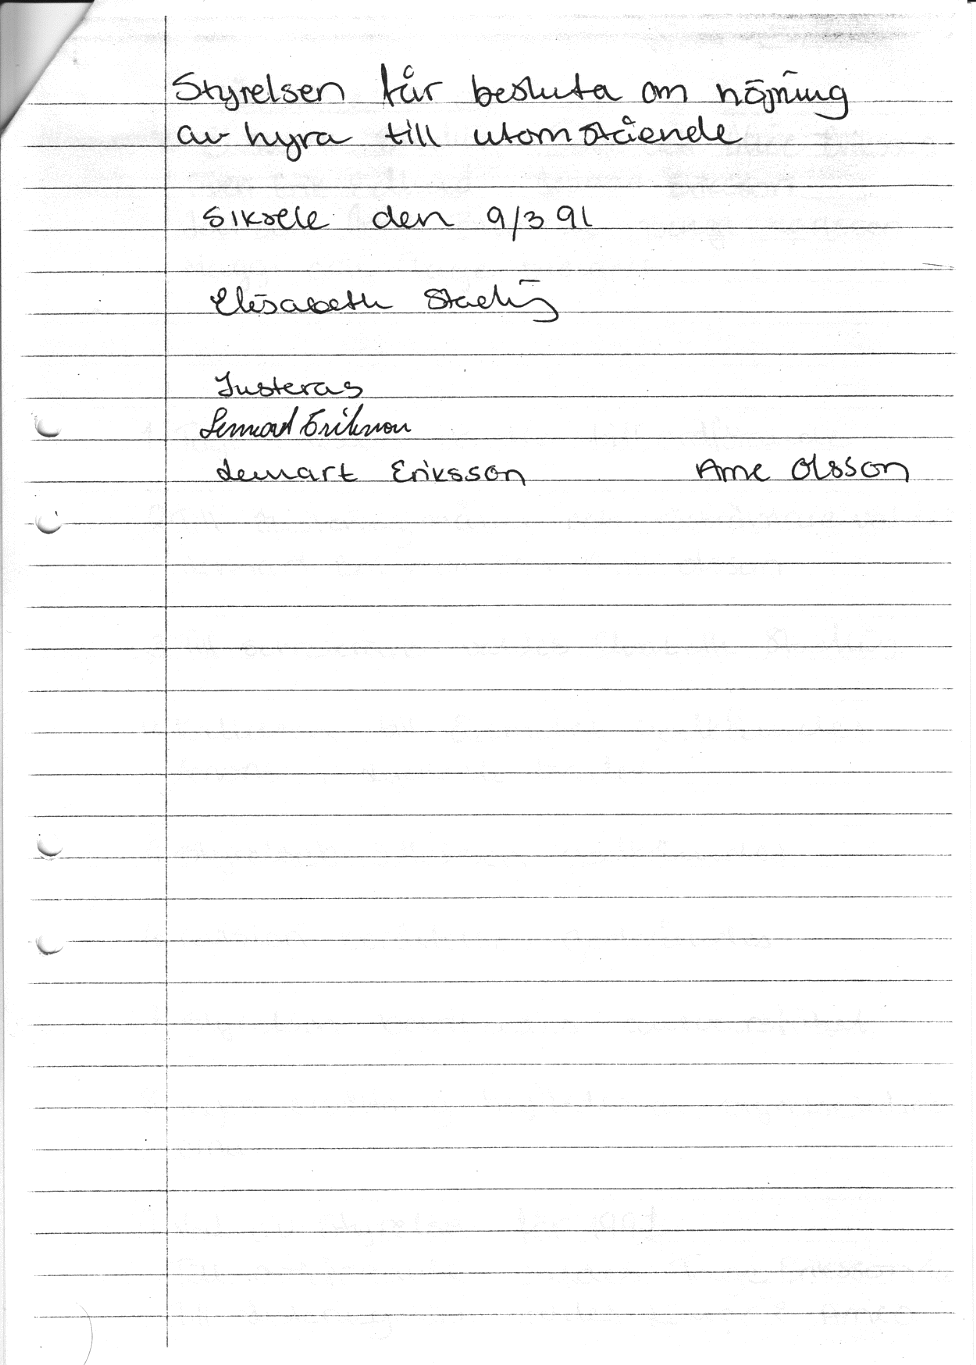 Styrelsen får besluta om höjning
av hyra till utomstående
Siksele den 9/3 91
Elisabeth
Justeras
Lennart Eriksson
Lennart Eriksson Arne Olsson